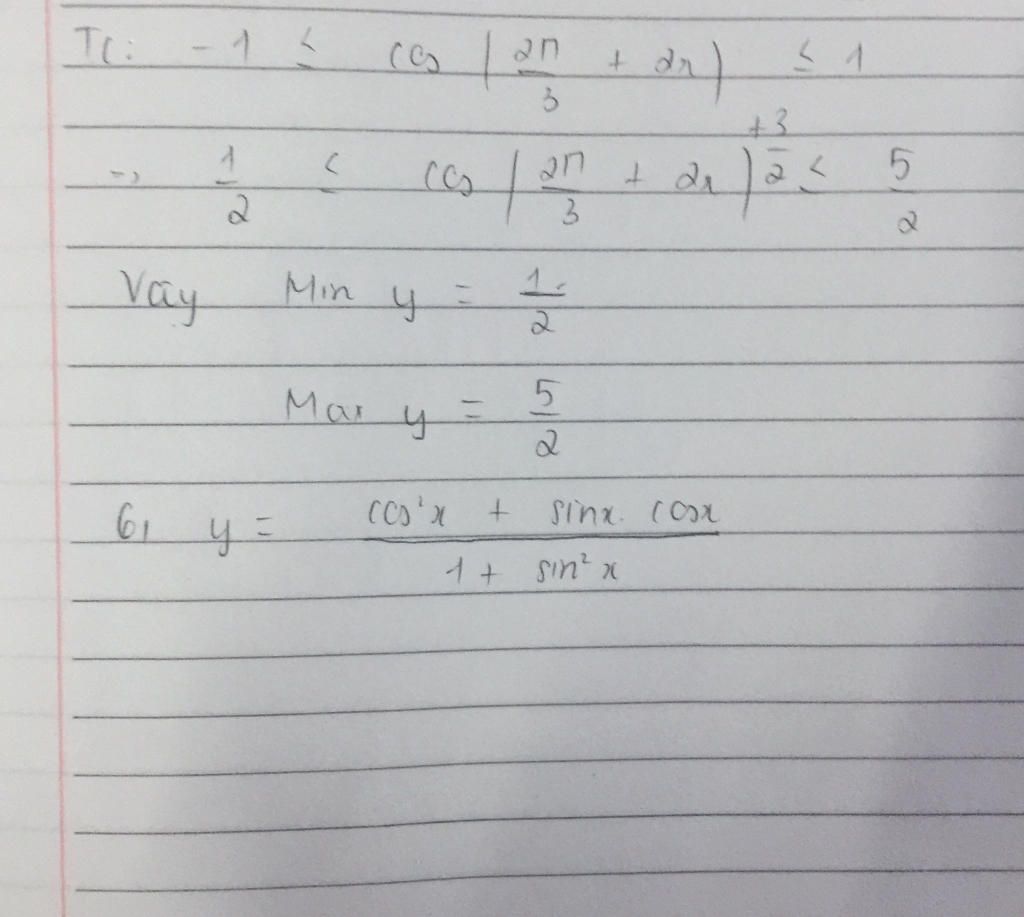 TC: -1 ≤ cos (2π/3 + 2x) ≤ 1
-> 1/2 ≤ cos (2π/3 + 2x) + 3/2 ≤ 5/2
Vay Min y = 1/2
Max y = 5/2
6, y = (cos²x + sinx. cosx)/(1 + sin²x)